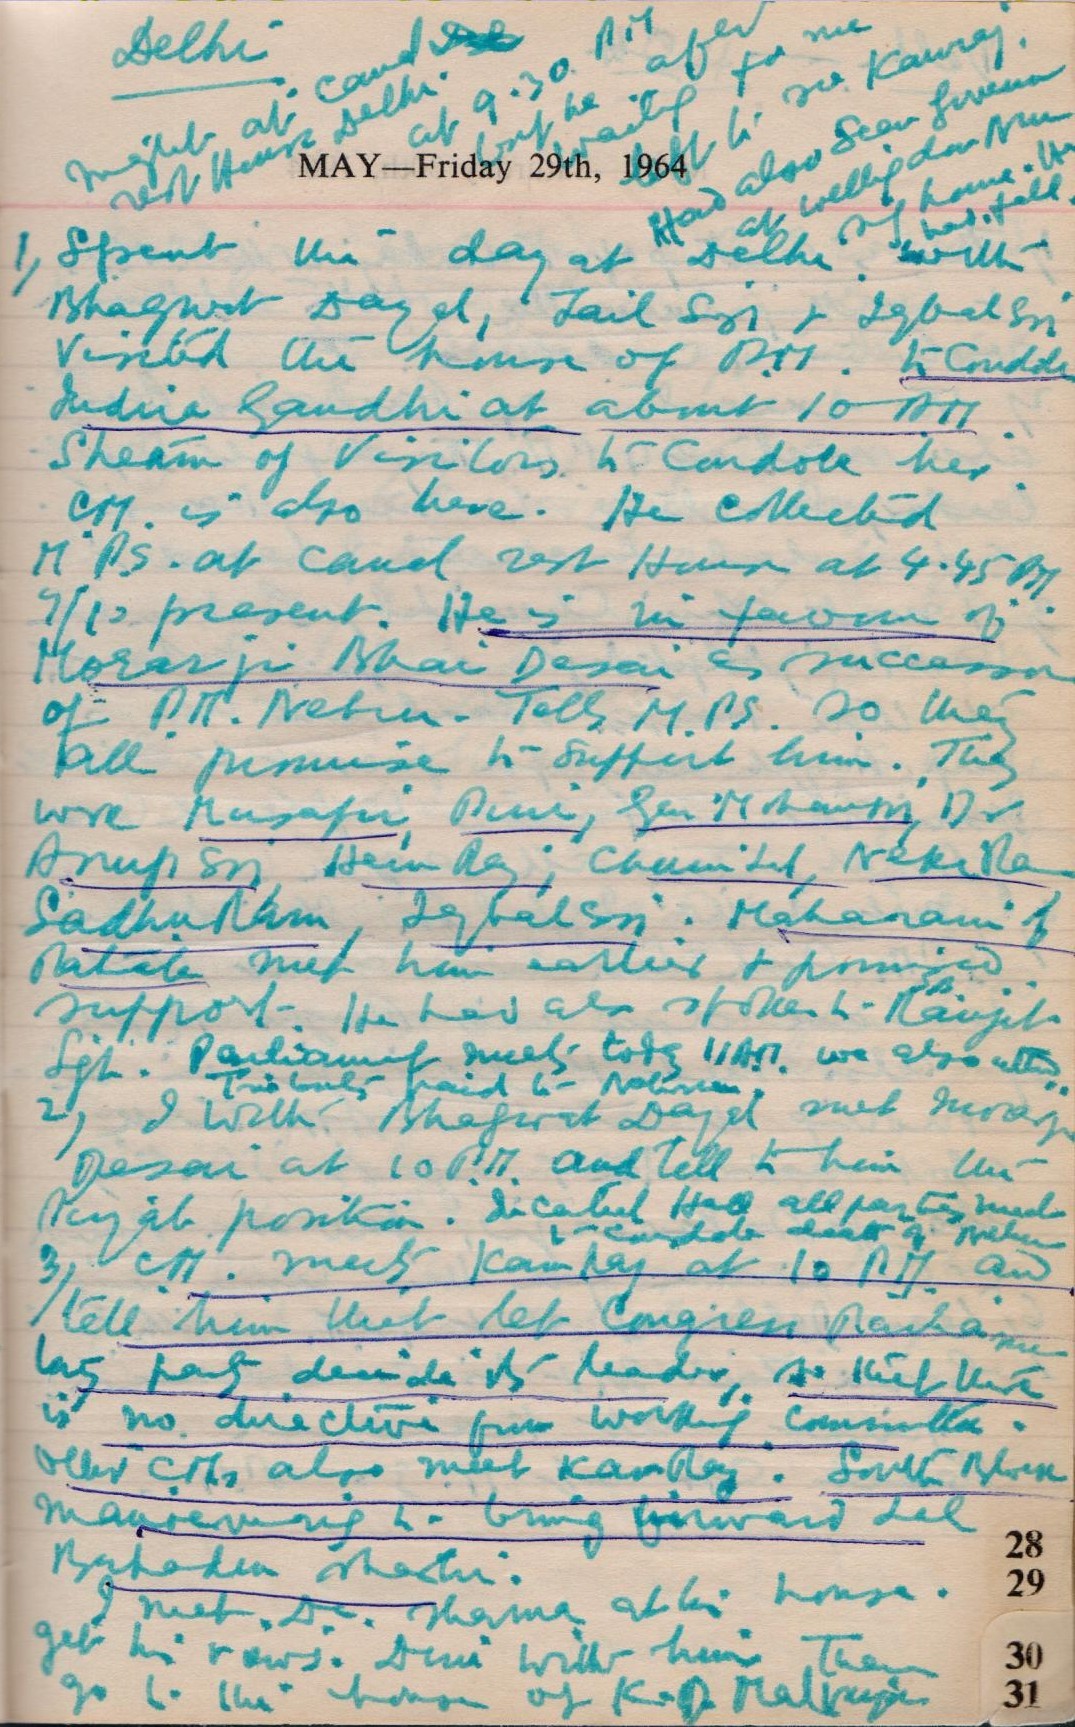 Delhi
night at canal
rest House Delhi
at 9.30 PM
but he
waiting for me
left to see Kamraj.
Had also Seen Governor
at Wellingdon Nursing
home. He
had. told.
MAY—Friday 29th, 1964
1, Spent the day at Delhi. with
Bhagwat Dayal, Jail Sgi + Iqbal Sgi
Visited the house of P.M. to Condole
Indira Gandhi at about 10 AM
Stream of Visitors to Condole her.
CM. is also here. He collected
M.P.S. at Canal rest House at 4.45 PM
9/12 present. He is in favour of
Morarji Bhai Desai as successor
of P.M. Nehru. Tells M.P.S. so they
all promise to support him. They
were Musafir, Puri, Gen Mohansgi, Dr
Anup Sgi Hem Raj, Chunilal, Neki Ram
Sadhu Ram, Iqbal Sgi. Maharani of
Patiala met him earlier & promised
support. He had also spoken to Ranjit
Sgh. Parliament meets today 11 AM. we also attend.
Tributes paid to Nehru.
2, I with Bhagwat Dayal met Morarji
Desai at 10 P.M. and tell to him the
Punjab position. all parties meet
to Condole death of Nehru
3, CM. meets Kamraj at 10 P.M. and
tell him that let Congress Parliamen
tary party decide its leader, so that there
is no directive from working Committee.
Other CMs also meet Kamraj. South Block
manoeuvring to bring forward Lal
Bahadur Shastri.
I meet. D.C. Sharma at his house.
get his views. Dine with him Then
go to the house of K.D. Malviya
28
29
30
31